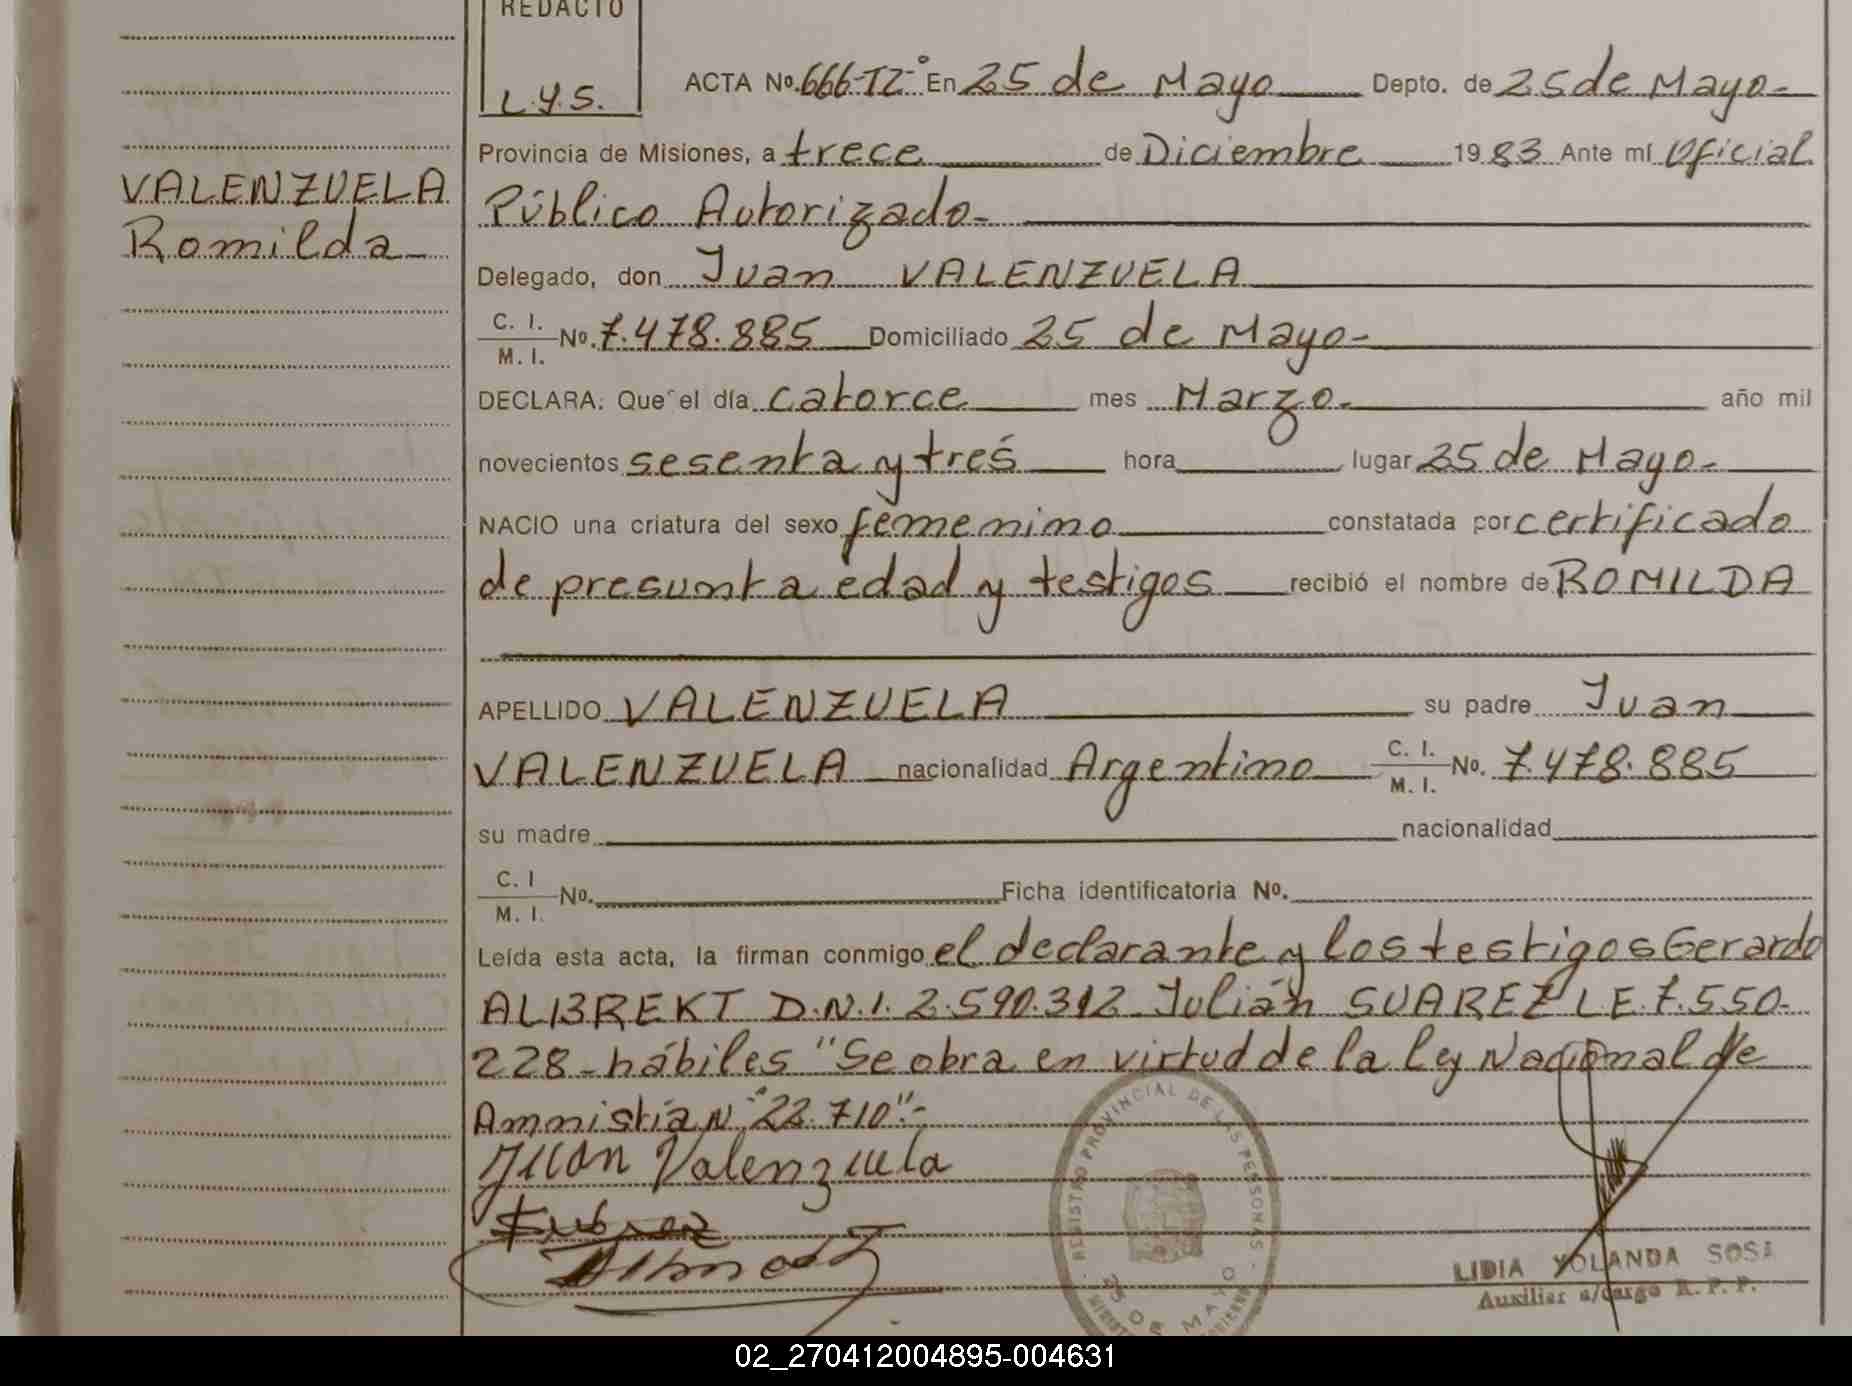 REDACTO
L.Y.S.
VALENZUELA
Romilda
ACTA Nº 666-T2-º En 25 de Mayo Depto. de 25 de Mayo-
Provincia de Misiones, a trece de Diciembre 1983 Ante mí Oficial
Público Autorizado-
Delegado, don Juan VALENZUELA
C. I. / M. I. Nº. 7.478.885 Domiciliado 25 de Mayo-
DECLARA: Que el día catorce mes Marzo- año mil
novecientos sesenta y tres hora lugar 25 de Mayo-
NACIO una criatura del sexo femenino constatada por certificado
de presunta edad y testigos recibió el nombre de ROMILDA
APELLIDO VALENZUELA su padre Juan
VALENZUELA nacionalidad Argentino C. I. / M. I. Nº. 7.478.885
su madre nacionalidad
C. I / M. I. Nº. Ficha identificatoria Nº.
Leída esta acta, la firman conmigo el declarante y los testigos Gerardo
ALBREKT D.N.I. 2.590.312 Julián SUAREZ L.E. 7.550-
228-hábiles "Se obra en virtud de la ley Nacional de
Amnistía Nº 22.710"-
Juan Valenzuela
REGISTRO PROVINCIAL DE LAS PERSONAS
25 DE MAYO
LIDIA YOLANDA SOSA
Auxiliar a/cargo R.P.P.
02_270412004895-004631